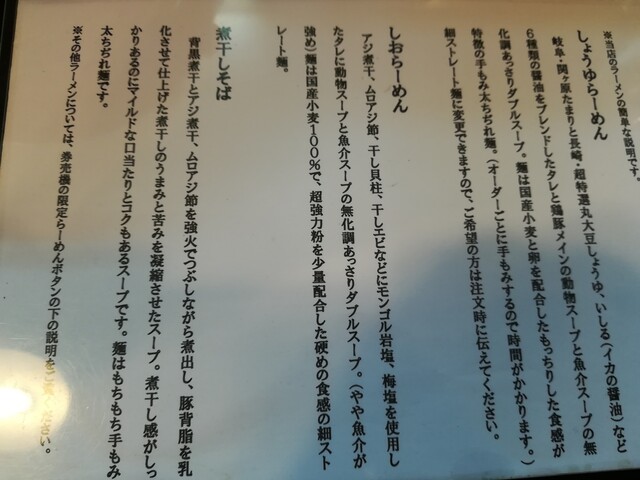 ※当店のラーメンの簡単な説明です。
しょうゆらーめん
岐阜・関ヶ原たまりと長崎・超特選丸大豆しょうゆ、いしる(イカの醤油)など
6種類の醤油をブレンドしたタレと鶏豚メインの動物スープと魚介スープの無
化調あっさりダブルスープ。麺は国産小麦と卵を配合したもっちりした食感が
特徴の手もみ太ちぢれ麺。(オーダーごとに手もみするので時間がかかります。)
細ストレート麺に変更できますので、ご希望の方は注文時に伝えてください。
しおらーめん
アジ煮干、ムロアジ節、干し貝柱、干しエビなどにモンゴル岩塩、梅塩を使用し
たタレに動物スープと魚介スープの無化調あっさりダブルスープ。(やや魚介が
強め)麺は国産小麦100%で、超強力粉を少量配合した硬めの食感の細スト
レート麺。
煮干しそば
背黒煮干とアジ煮干、ムロアジ節を強火でつぶしながら煮出し、豚背脂を乳
化させて仕上げた煮干しのうまみと苦みを凝縮させたスープ。煮干し感がしっ
かりあるのにマイルドな口当たりとコクもあるスープです。麺はもちもち手もみ
太ちぢれ麺です。
※その他ラーメンについては、券売機の限定らーめんボタンの下の説明をご覧ください。